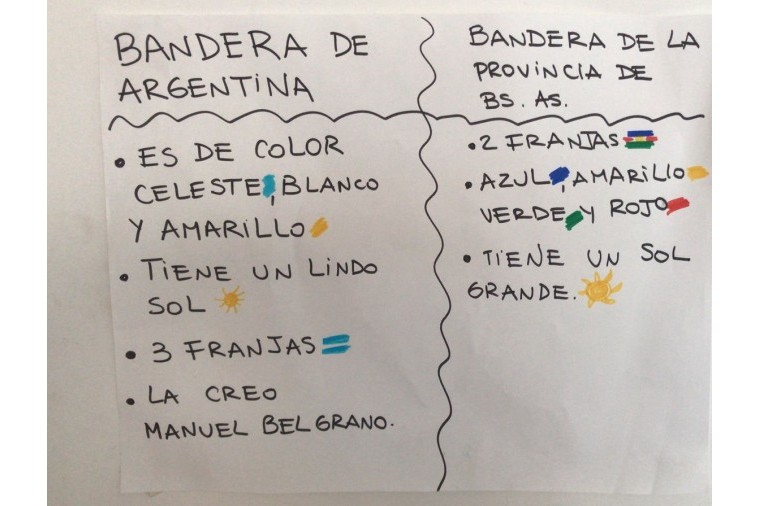 BANDERA DE
ARGENTINA
• ES DE COLOR
CELESTE, BLANCO
Y AMARILLO
• TIENE UN LINDO
SOL
• 3 FRANJAS
• LA CREO
MANUEL BELGRANO.
BANDERA DE LA
PROVINCIA DE
BS. AS.
• 2 FRANJAS
• AZUL, AMARILLO
VERDE Y ROJO
• TIENE UN SOL
GRANDE.